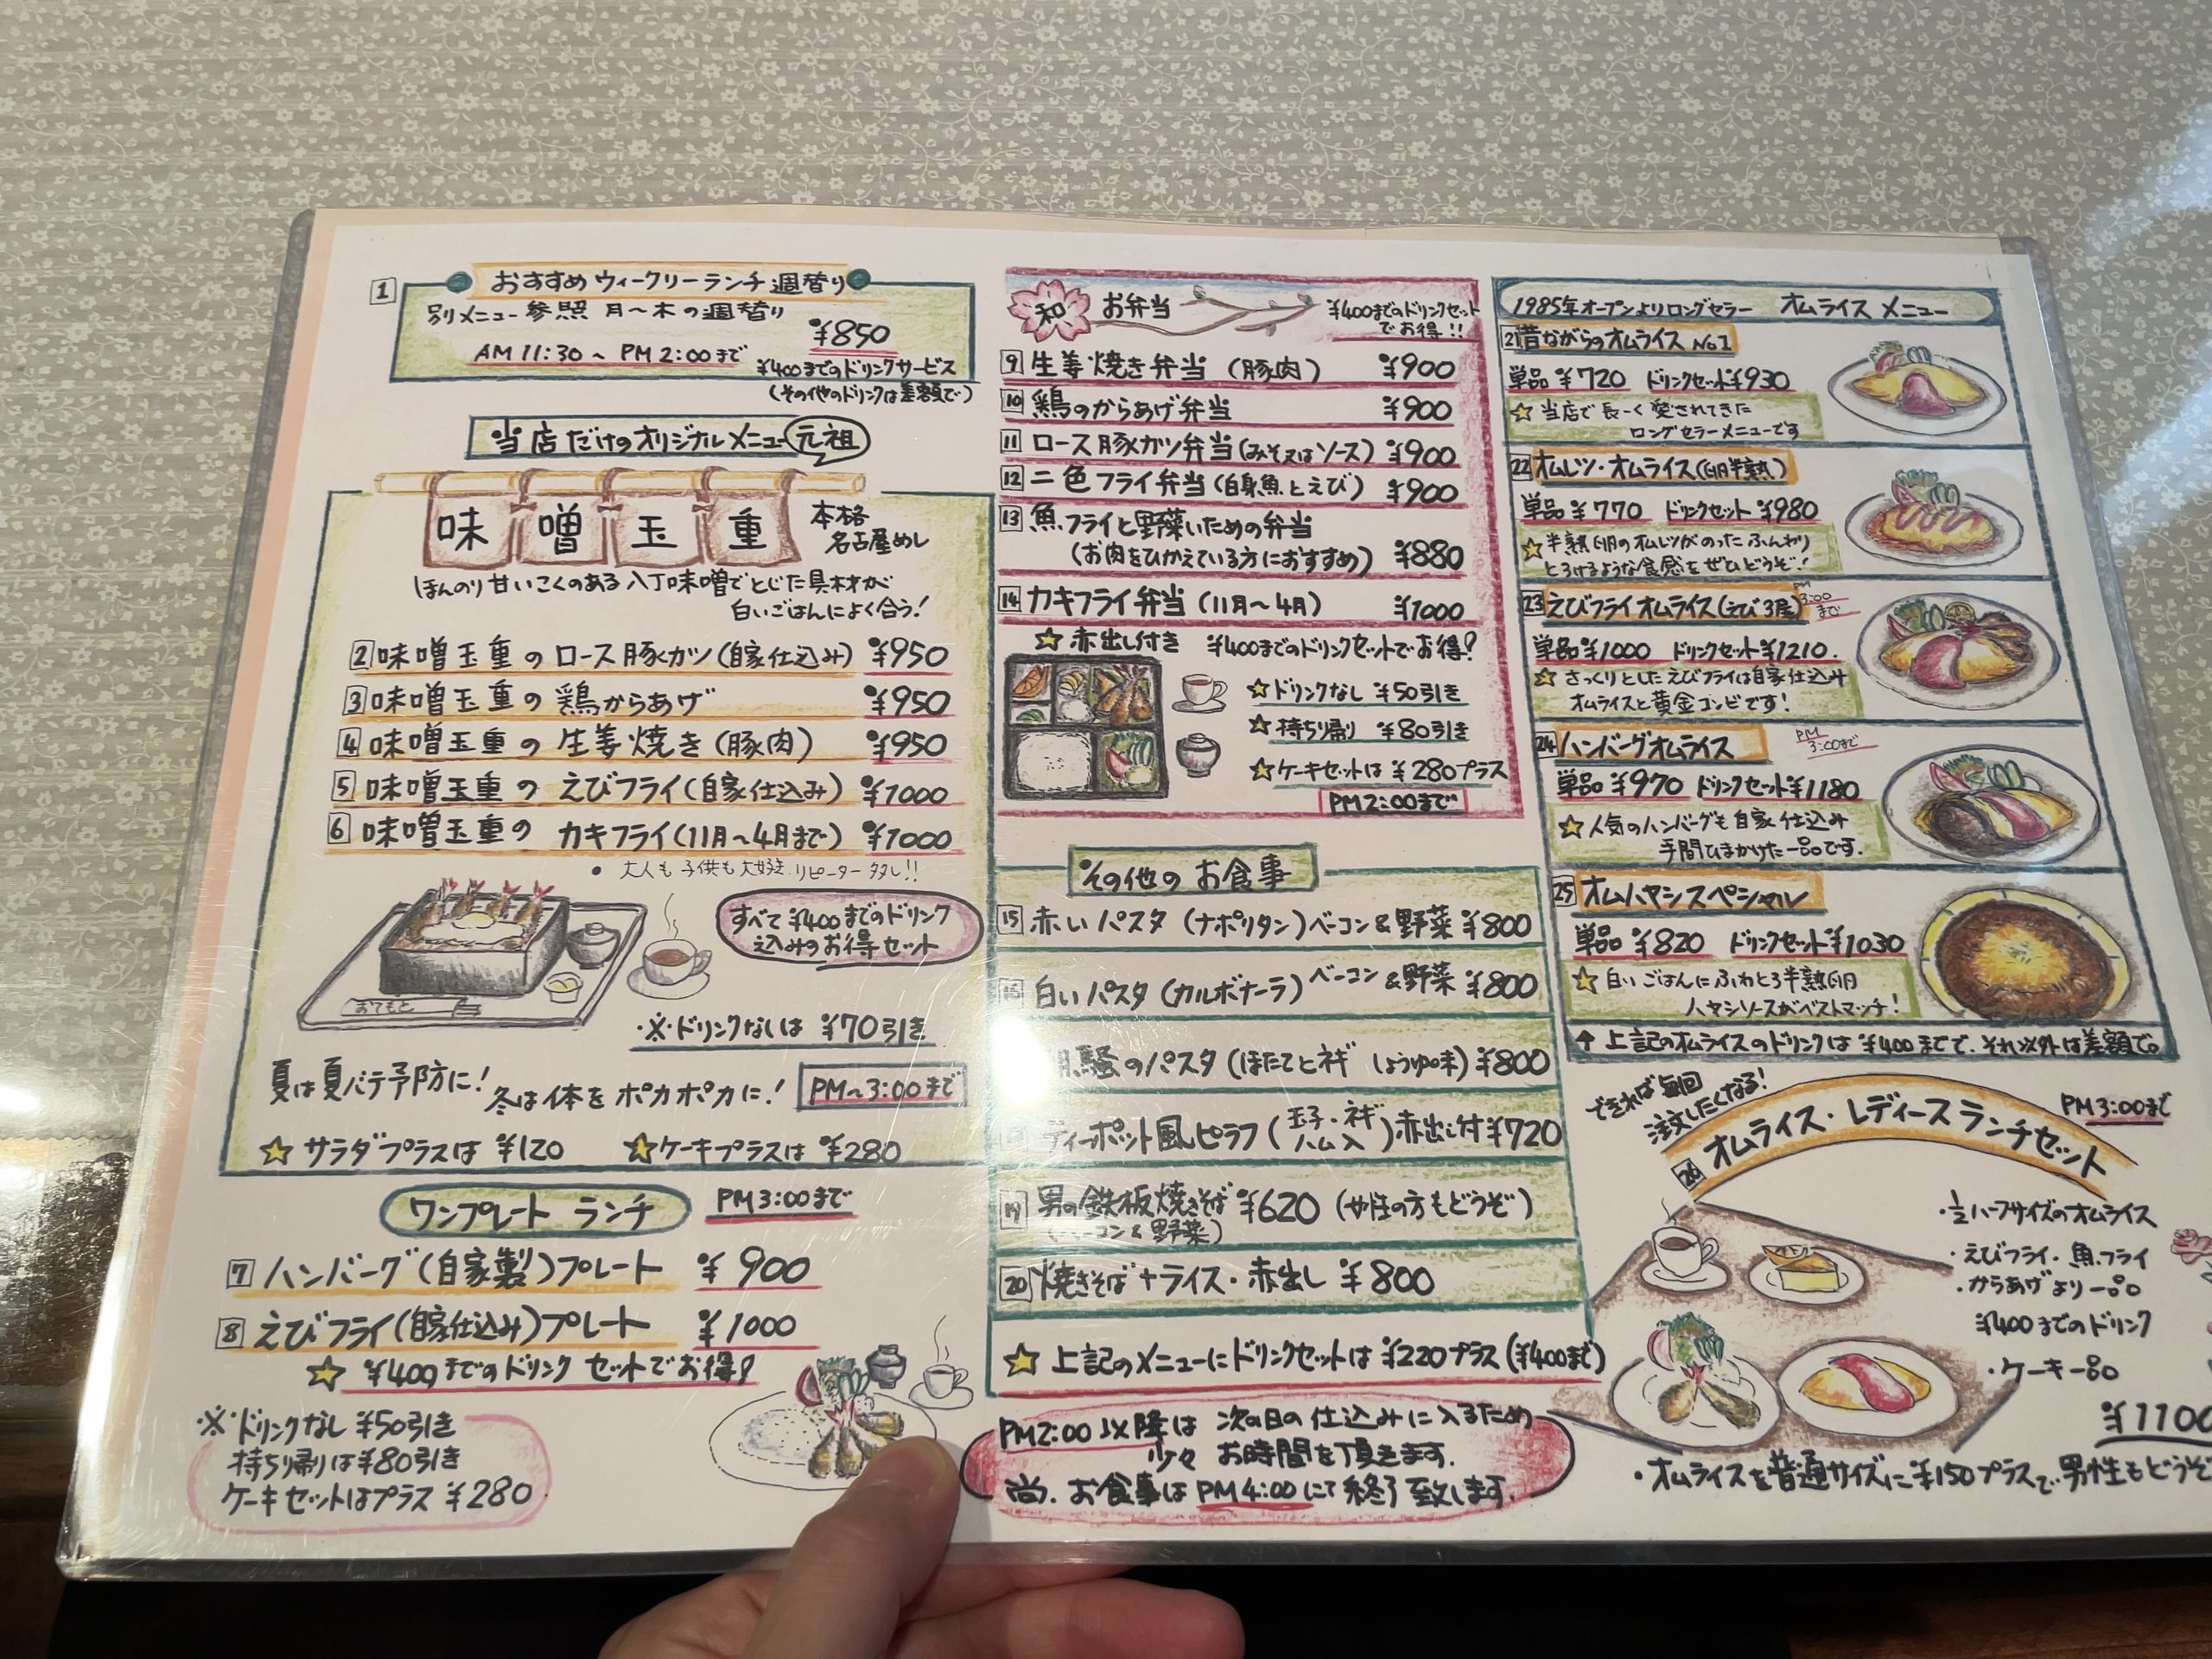 1 おすすめウィークリーランチ週替り
別メニュー参照 月～木の週替り
¥850
AM11:30～PM2:00まで
¥400までのドリンクサービス
(その他のドリンクは差額で)
当店だけのオリジナルメニュー 元祖
味噌玉重
本格
名古屋めし
ほんのり甘いこくのある八丁味噌でとじた具材が
白いごはんによく合う!
2 味噌玉重のロース豚カツ(自家仕込み) ¥950
3 味噌玉重の鶏からあげ ¥950
4 味噌玉重の生姜焼き(豚肉) ¥950
5 味噌玉重のえびフライ(自家仕込み) ¥1000
6 味噌玉重のカキフライ(11月～4月まで) ¥1000
・大人も子供も大好き リピーター多し!!
すべて¥400までのドリンク
込みのお得セット
おてもと
・※・ドリンクなしは ¥70引き
夏は夏バテ予防に! 冬は体をポカポカに!
PM～3:00まで
☆サラダプラスは ¥120 ☆ケーキプラスは ¥280
ワンプレート ランチ PM3:00まで
7 ハンバーグ(自家製)プレート ¥900
8 えびフライ(自家仕込み)プレート ¥1000
☆ ¥400までのドリンク セットでお得!
・※・ドリンクなし ¥50引き
持ち帰りは¥80引き
ケーキセットはプラス ¥280
和 お弁当
¥400までのドリンクセット
でお得!!
9 生姜焼き弁当(豚肉) ¥900
10 鶏のからあげ弁当 ¥900
11 ロース豚カツ弁当(みそ又はソース) ¥900
12 二色フライ弁当(白身魚とえび) ¥900
13 魚フライと野菜いための弁当
(お肉をひかえている方におすすめ) ¥880
14 カキフライ弁当(11月～4月) ¥1000
☆赤出し付き ¥400までのドリンクセットでお得!
☆ドリンクなし ¥50引き
☆持ち帰り ¥80引き
☆ケーキセットは ¥280プラス
PM2:00まで
その他のお食事
15 赤いパスタ(ナポリタン)ベーコン&野菜 ¥800
16 白いパスタ(カルボナーラ)ベーコン&野菜 ¥800
騒のパスタ(ほたてとネギ しょうゆ味) ¥800
ティーポット風ピラフ(玉子・ネギ ハム入)赤出し付 ¥720
19 男の鉄板焼きそば ¥620 (女性の方もどうぞ)
(ベーコン&野菜)
20 焼きそば+ライス・赤出し ¥800
☆上記のメニューにドリンクセットは ¥220プラス(¥400まで)
PM2:00以降は 次の日の仕込みに入るため
少々 お時間を頂きます。
尚、お食事はPM4:00にて終了致します。
1985年オープンよりロングセラー オムライス メニュー
21 昔ながらのオムライス No1
単品 ¥720 ドリンクセット ¥930
☆当店で長ーく愛されてきた
ロングセラーメニューです
22 オムレツ・オムライス(卵半熟)
単品 ¥770 ドリンクセット ¥980
☆半熟卵のオムレツがのったふんわり
とろけるような食感をぜひどうぞ!
23 えびフライオムライス(えび3尾) PM3:00まで
単品 ¥1000 ドリンクセット ¥1210.
☆さっくりとしたえびフライは自家仕込み
オムライスと黄金コンビです!
24 ハンバーグオムライス PM3:00まで
単品 ¥970 ドリンクセット ¥1180
☆人気のハンバーグも自家仕込み
手間ひまかけた一品です.
25 オムハヤシスペシャル
単品 ¥820 ドリンクセット ¥1030
☆白いごはんにふわとろ半熟卵
ハヤシソースがベストマッチ!
↑上記のオムライスのドリンクは ¥400まで、それ以外は差額で。
できれば毎回
注文したくなる!
PM3:00まで
26 オムライス・レディースランチセット
・½ハーフサイズのオムライス
・えびフライ・魚フライ
・からあげより一品
¥400までのドリンク
・ケーキ一品
¥1100
・オムライスを普通サイズに¥150プラスで男性もどうぞ